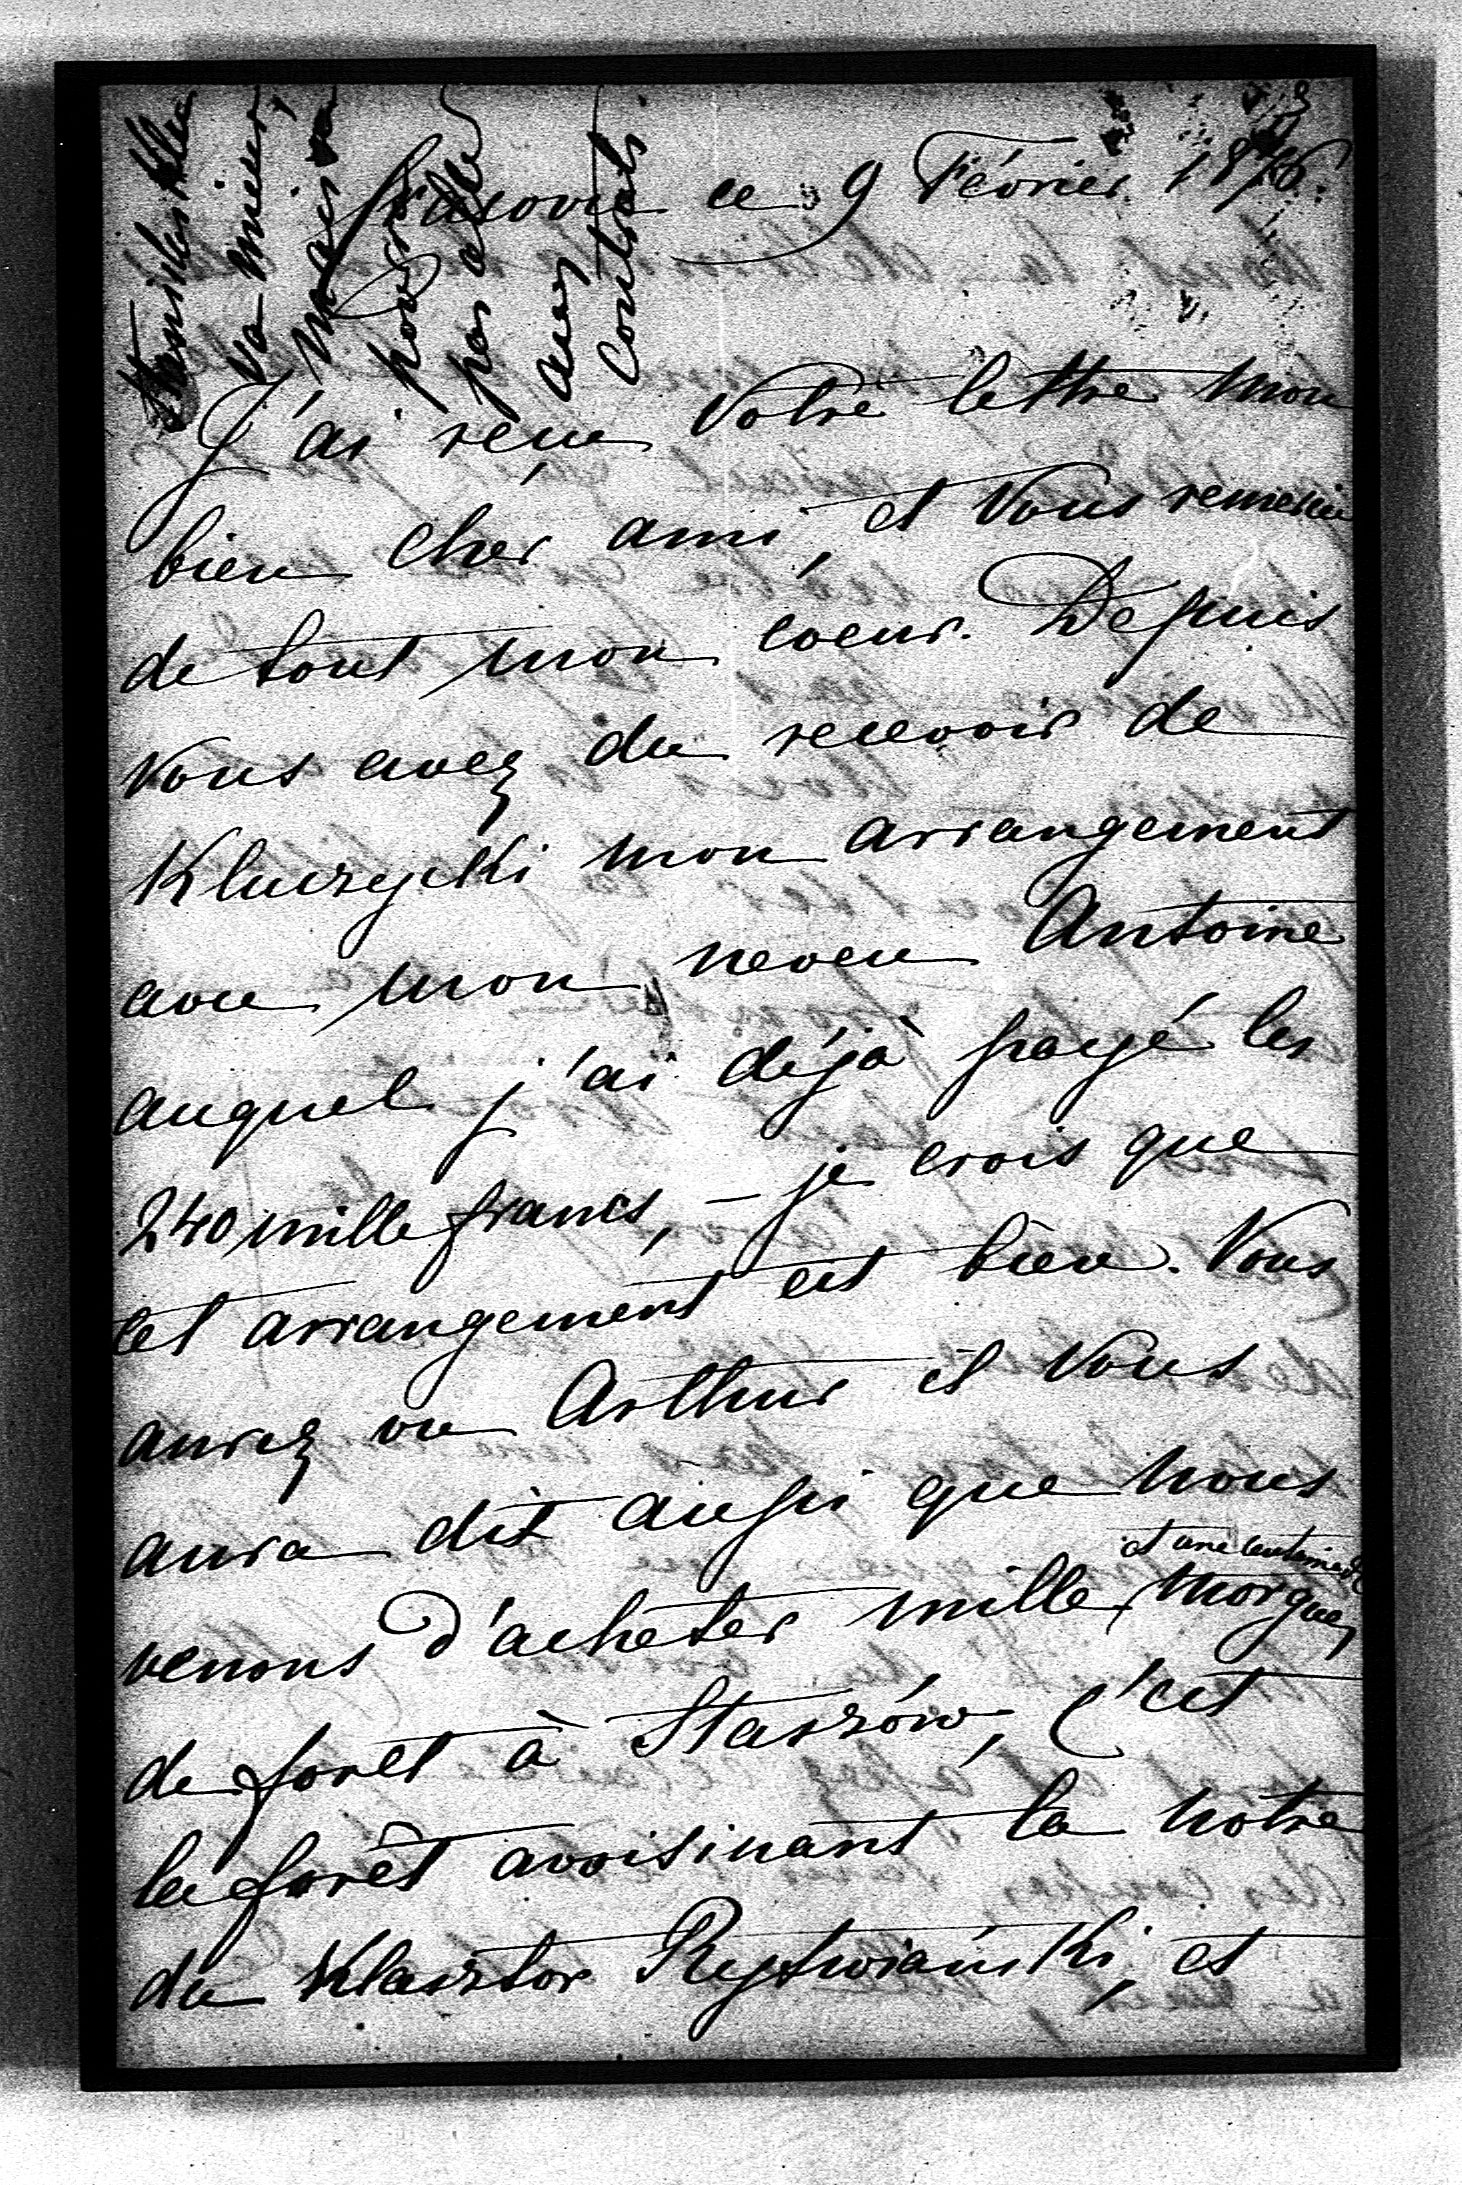 Cracovie ce 9 Février 1876.
J'ai reçu votre lettre mon
bien cher ami, et vous remercie
de tout mon coeur. Depuis
vous avez du recevoir de
Kluczycki mon arrangement
avec mon neveu Antoine
auquel j'ai déjà payé les
240 mille francs, – je crois que
cet arrangement est bien. Vous
aurez vu Arthur il vous
aura dit aussi que nous
et une centaine de
venons d'acheter mille morgues
de foret à Staszów, c'est
la forêt avoisinant la notre
du Klasztor Rytwiański, et
va mieux,
mais va
pas aller
aux
Contrats.